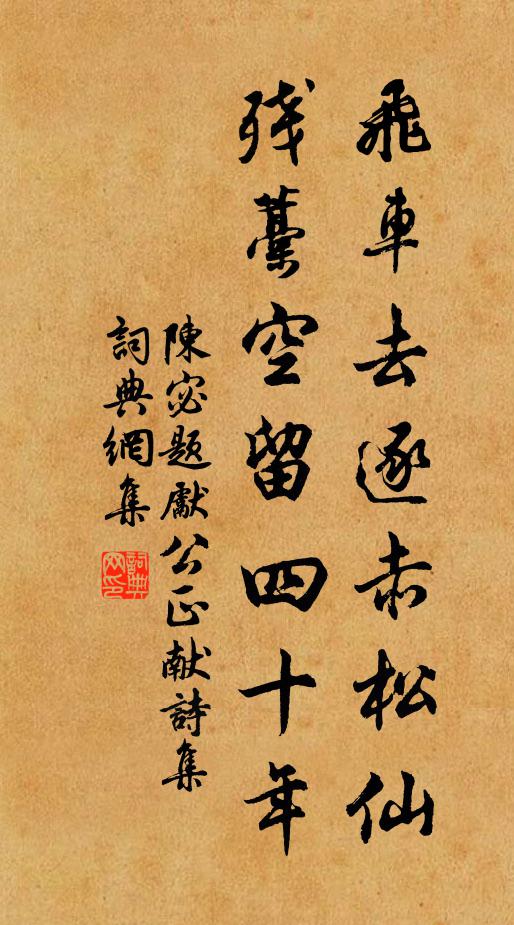 飛車去逐赤松仙
殘藁空留四十年
陳宓題獻公正献詩集
詞典網集
詞典網印